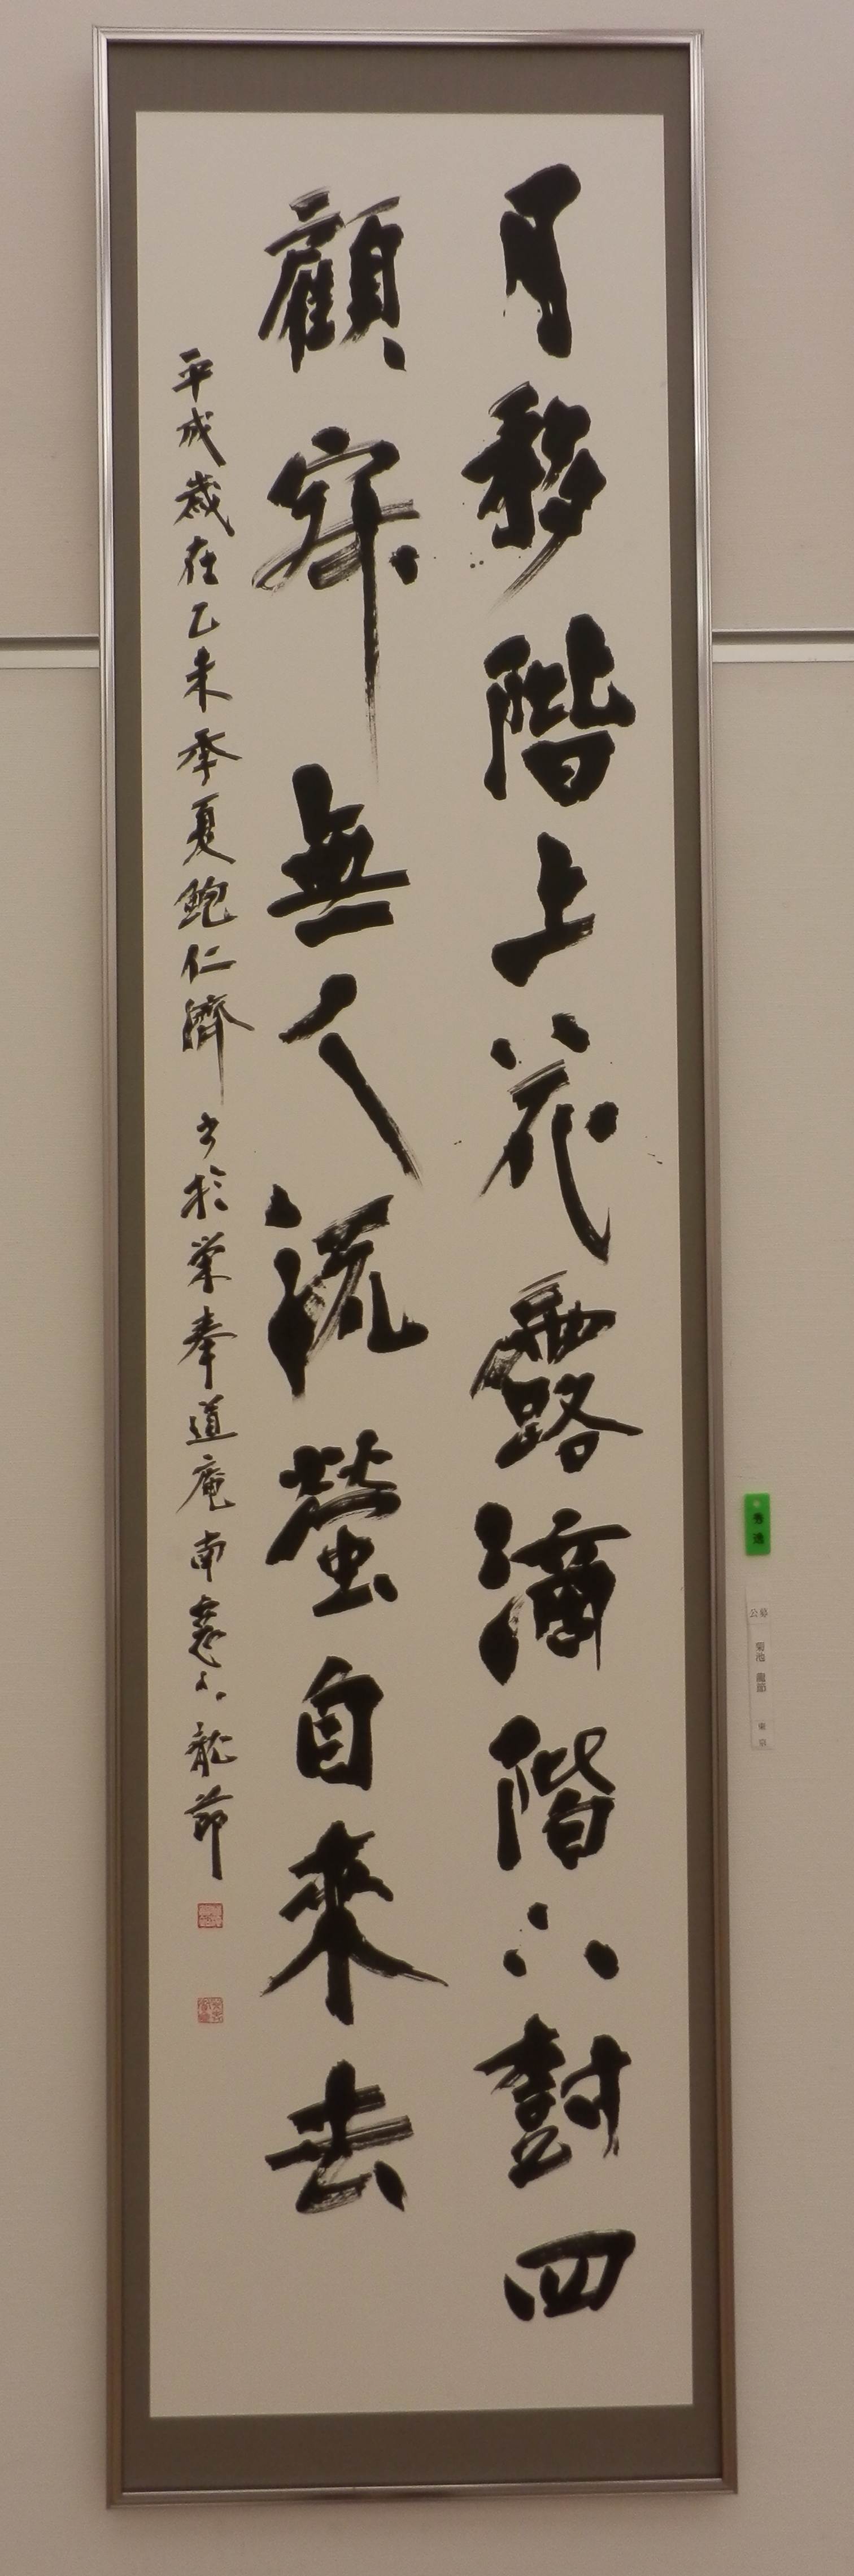 月移階上花露滴階下樹四
顧寂無人流螢自來去
平成歳在乙未季夏鮑仁濟書於栄奉道庵南窓下龍節
秀逸
公募 菊池 龍節 東京